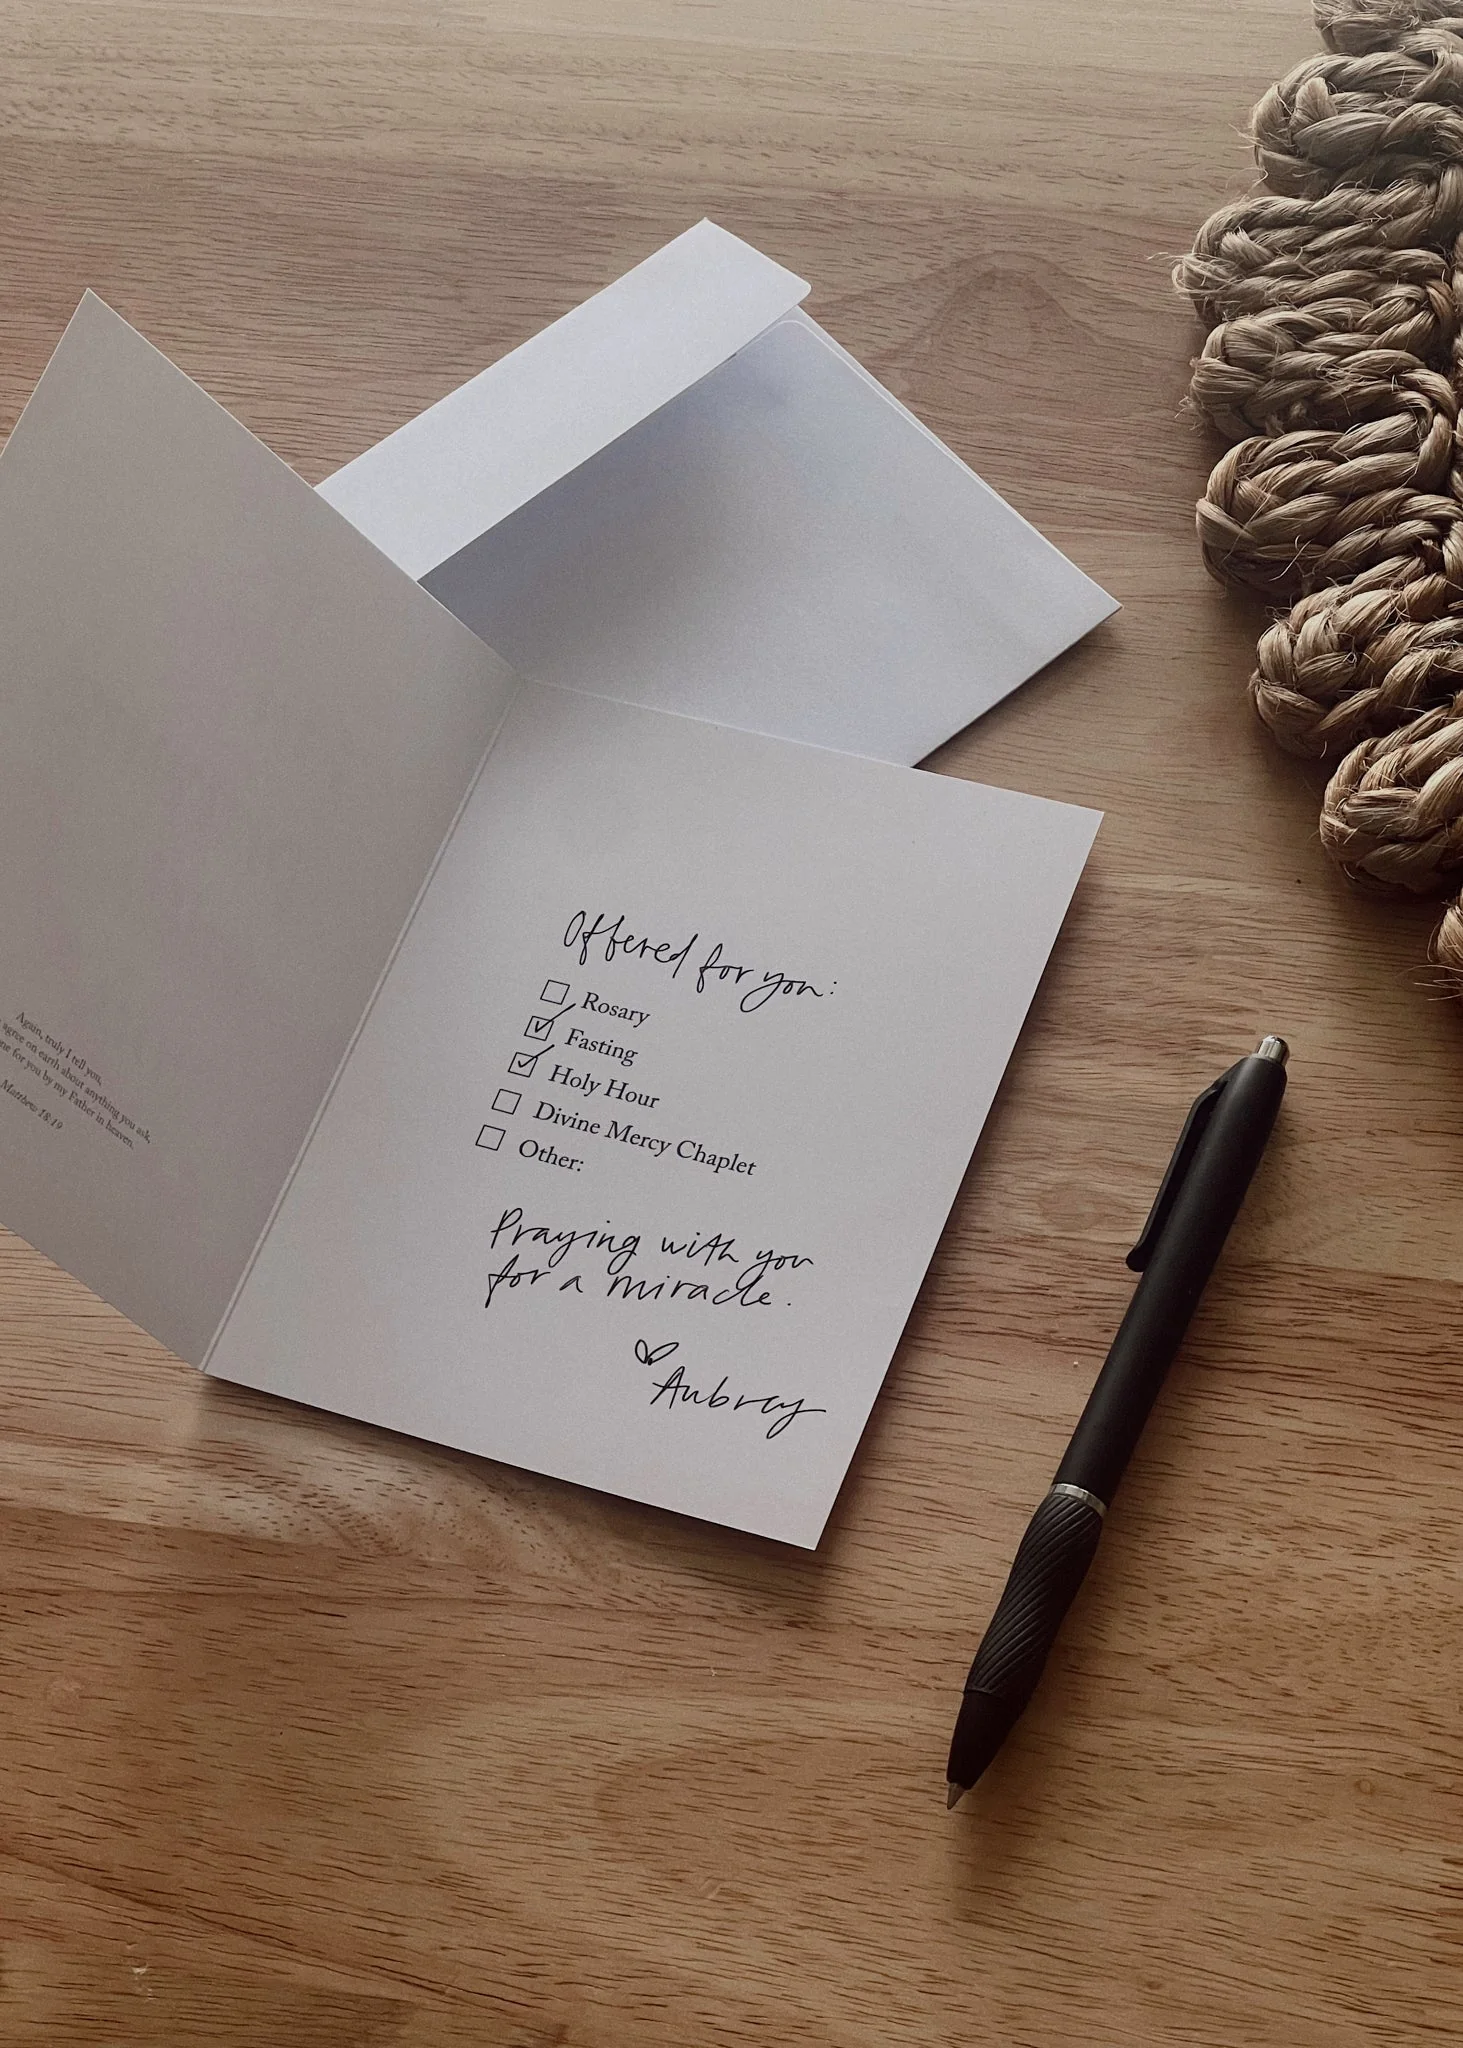 Again, truly I tell you,
agree on earth about anything you ask,
for you by my Father in heaven.
Matthew 18:19
Offered for you:
Rosary
Fasting
Holy Hour
Divine Mercy Chaplet
Other:
Praying with you
for a miracle.
Aubrey